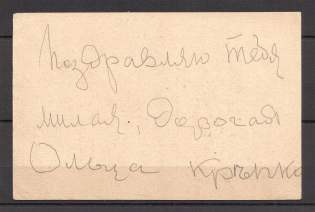 Поздравляю тебя
милая, дорогая
Ольга крѣпко